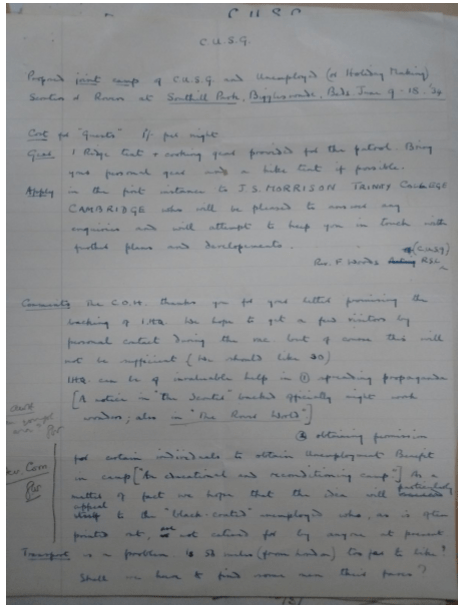 C.U.S.G.
C.U.S.G.
Proposed joint camp of C.U.S.G. and Unemployed (or Holiday Making)
Scouters & Rovers at Southill Park, Biggleswade, Beds. June 9 - 18.
Cost for "Guests" 1/- per night
Gear 1 Ridge tent & cooking gear provided for the patrol. Bring
your personal gear and a hike tent if possible.
Apply in the first instance to J.S. MORRISON TRINITY COLLEGE
CAMBRIDGE who will be pleased to answer any
enquiries and will attempt to keep you in touch with
further plans and developments.
(CUSG)
F. Woods RSL
Comments The C.O.H. thanks you for your letter promising the
backing of I.H.Q. We hope to get a few visitors by
personal contact during the vac but of course this will
not be sufficient (We should like 30)
IHQ can be of invaluable help in ① spreading propaganda
[A notice in "the Scouter" backed officially might work
wonders; also in "The Rover World"]
② obtaining permission
for certain individuals to obtain Unemployment Benefit
in camp ["An educational and reconditioning camp"] As a
matter of fact we hope that the idea will particularly
appeal to the "black-coated" unemployed who, as is often
pointed out, are not catered for by anyone at present
Transport is a problem. Is 50 miles (from London) too far to hike?
Shall we have to find some men their fares?